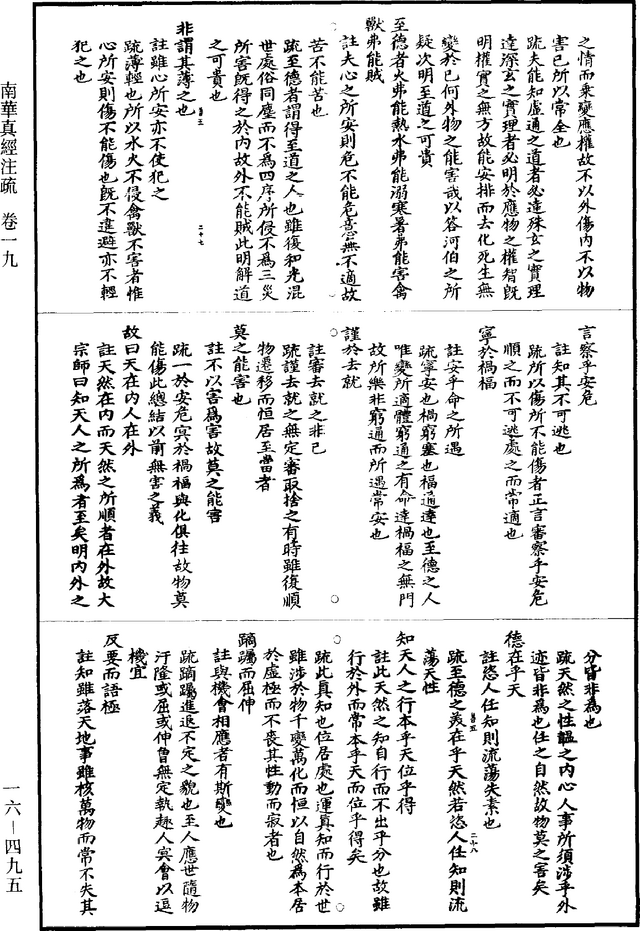 南華真經注疏　卷一九
一六—四九五
之情而乘變應權故不以外傷內不以物
害己所以常全也
疏夫能知虛通之道者必達殊玄之實理
達深玄之實理者必明於應物之權智既
明權實之無方故能安排而去化死生無
變於己何外物之能害哉以答河伯之所
疑次明至道之可貴
至德者火弗能熱水弗能溺寒暑弗能害禽
獸弗能賊
註夫心之所安則危不能危意無不適故
苦不能苦也
疏至德者謂得至道之人也雖復和光混
世處俗同塵而不為四序所侵不為三災
所害既得之於內故外不能賊此明解道
之可貴也
非謂其薄之也
註雖心所安亦不使犯之
疏薄輕也所以水火不侵禽獸不害者惟
心所安則傷不能傷也既不違避亦不輕
犯之也
言察乎安危
註知其不可逃也
疏所以傷所不能傷者正言審察乎安危
順之而不可逃處之而常適也
寧於禍福
註安乎命之所遇
疏寧安也禍窮塞也福通達也至德之人
唯變所適體窮通之有命達禍福之無門
故所樂非窮通而所遇常安也
謹於去就
註審去就之非己
疏謹去就之無定審取捨之有時雖復順
物遷移而恒居至當者
莫之能害也
註不以害為害故莫之能害
疏一於安危冥於禍福與化俱往故物莫
能傷此總結以前無害之義
故曰天在內人在外
註天然在內而天然之所順者在外故大
宗師曰知天人之所為者至矣明內外之
分皆非為也
疏天然之性韞之內心人事所須涉乎外
迹皆非為也任之自然故物莫之害矣
德在乎天
註恣人任知則流蕩失素也
疏至德之美在乎天然若恣人任知則流
蕩天性
知天人之行本乎天位乎得
註此天然之知自行而不出乎分也故雖
行於外而常本乎天而位乎得矣
疏此真知也位居處也運真知而行於世
雖涉於物千變萬化而恒以自然為本居
於虛極而不喪其性動而寂者也
蹢躅而屈伸
註與機會相應者有斯變也
疏蹢躅進退不定之貌也至人應世隨物
汙隆或屈或伸曾無定執趣人冥會以逗
機宜
反要而語極
註知雖落天地事雖核萬物而常不失其
二十七
二十八